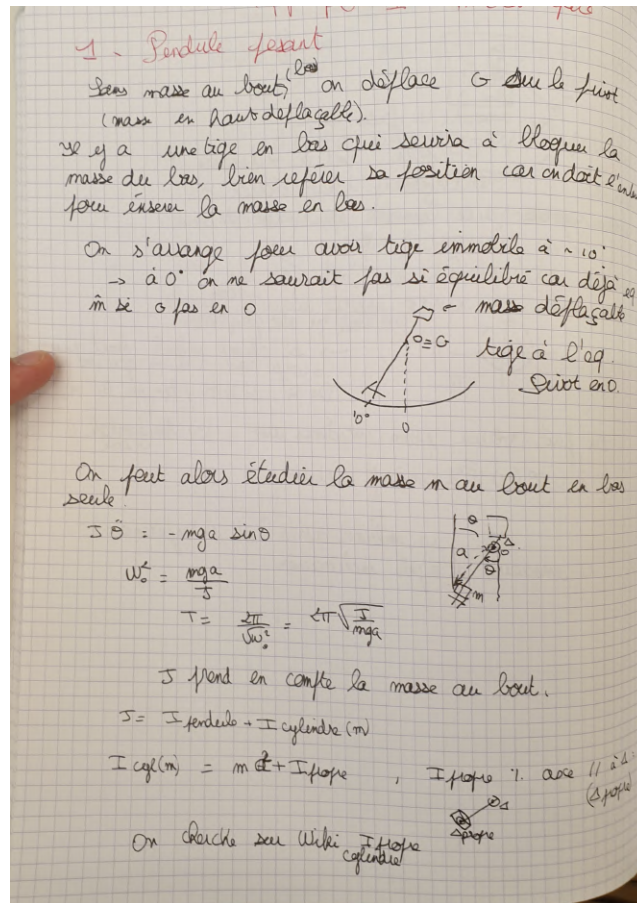 1. Pendule pesant
Sans masse au bout, (bas) on déplace G sur le pivot
(masse en haut déplaçable).
Il y a une tige en bas qui servira à bloquer la
masse du bas, bien repérer sa position car on doit l'enlever
pour insérer la masse en bas.
On s'arrange pour avoir tige immobile à ~ 10°
→ à 0° on ne saurait pas si équilibré car déjà eq
m̂ si G pas en O
← masse déplaçable
O≡G
tige à l'eq.
Pivot en O.
10°
0
On peut alors étudier la masse m au bout en bas
seule.
J θ̈ = - mga sinθ
θ
Δ
a
O
θ
m
ω₀² = mga / J
T = 2π / √ω₀² = 2π √(J / mga)
J prend en compte la masse au bout.
J = I pendule + I cylindre (m)
I cyl(m) = m a² + I propre , I propre % axe // à Δ.
(Δ propre)
Δ
Δpropre
On cherche sur Wiki I propre
cylindre